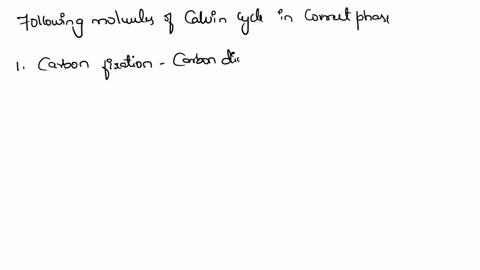 Following molecules of Calvin Cycle in Correct phase
1. Carbon fixation - Carbon di